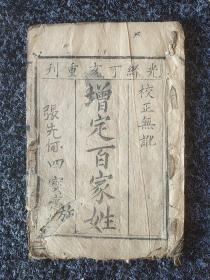 光緒丁亥重刋
校正無訛
增定百家姓
張先